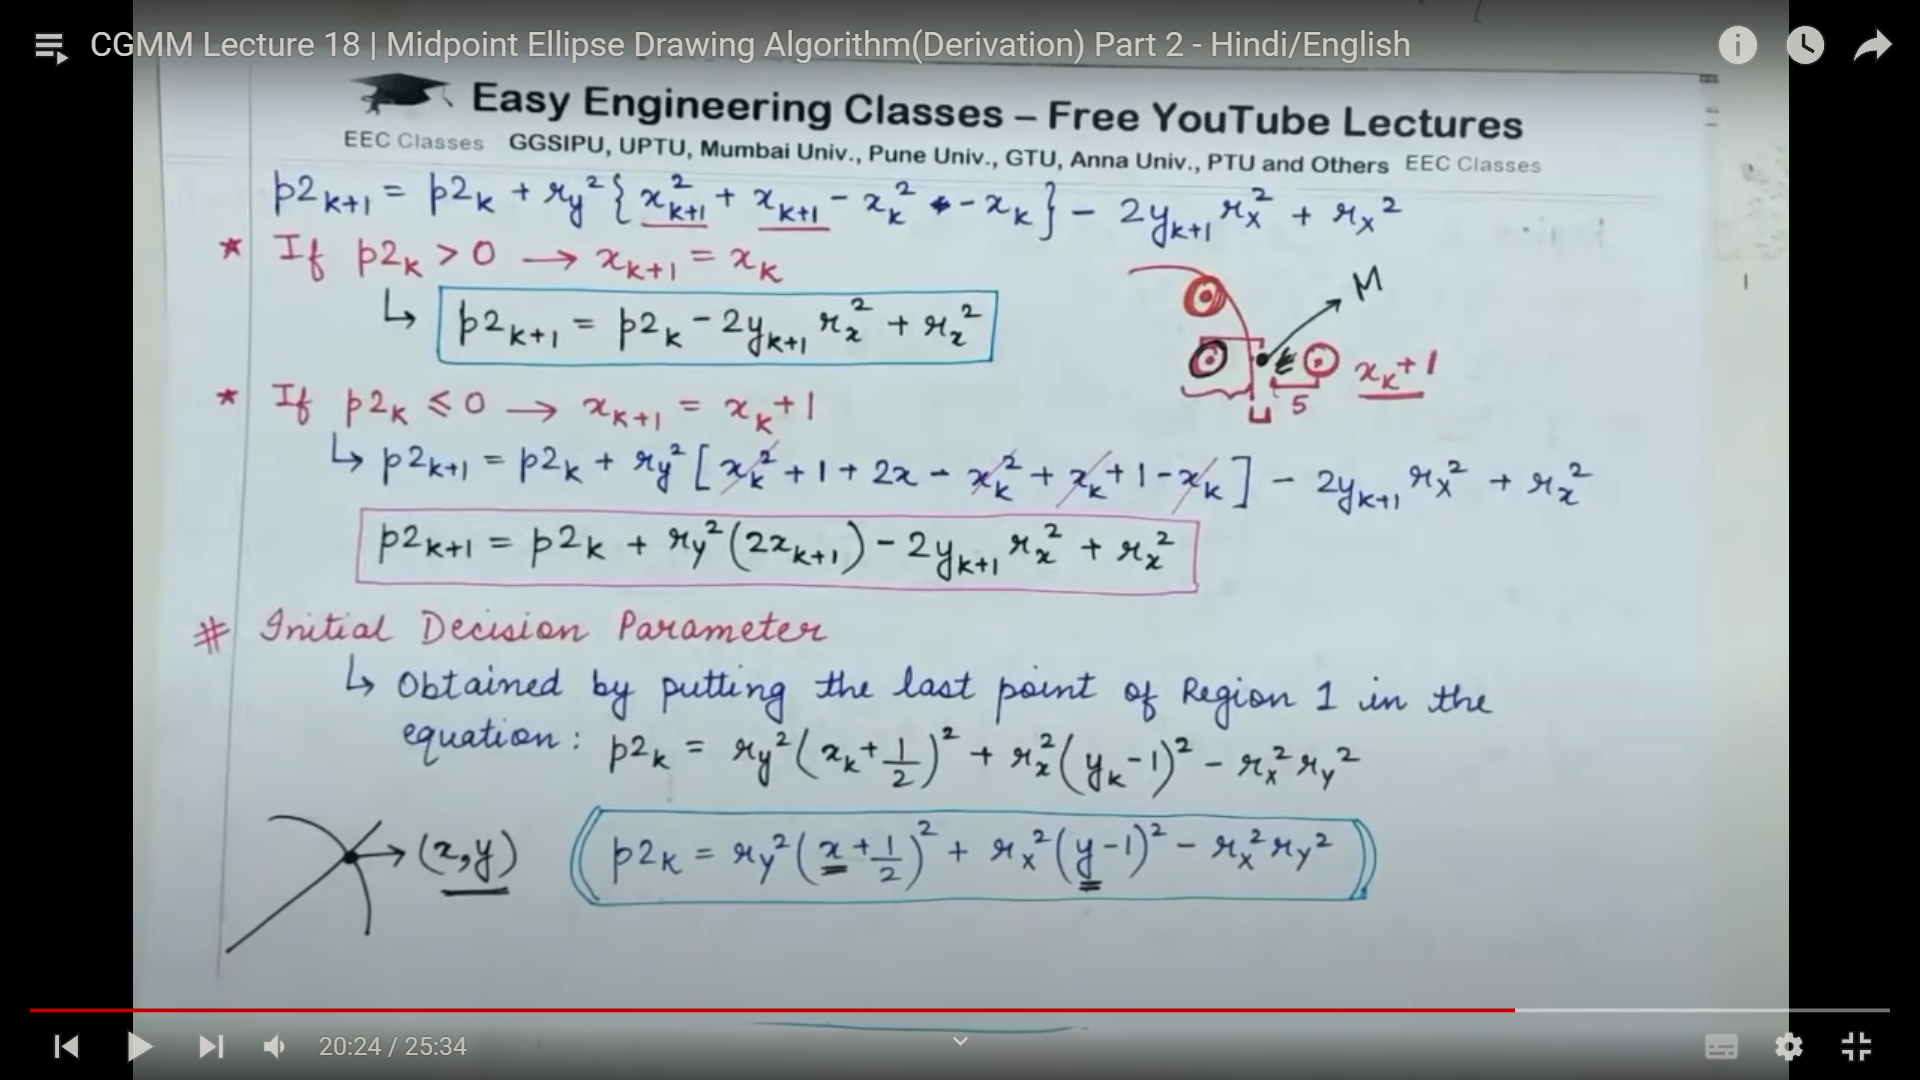 CGMM Lecture 18 | Midpoint Ellipse Drawing Algorithm(Derivation) Part 2 - Hindi/English
Easy Engineering Classes – Free YouTube Lectures
EEC Classes GGSIPU, UPTU, Mumbai Univ., Pune Univ., GTU, Anna Univ., PTU and Others EEC Classes
p2ₖ₊₁ = p2ₖ + r_y² { x²ₖ₊₁ + xₖ₊₁ - xₖ² - xₖ } - 2yₖ₊₁ r_x² + r_x²
* If p2ₖ > 0 → xₖ₊₁ = xₖ
↳ p2ₖ₊₁ = p2ₖ - 2yₖ₊₁ r_x² + r_x²
M
xₖ+1
5
* If p2ₖ ≤ 0 → xₖ₊₁ = xₖ+1
↳ p2ₖ₊₁ = p2ₖ + r_y² [ xₖ² + 1 + 2x - xₖ² + xₖ + 1 - xₖ ] - 2yₖ₊₁ r_x² + r_x²
p2ₖ₊₁ = p2ₖ + r_y² (2xₖ₊₁) - 2yₖ₊₁ r_x² + r_x²
# Initial Decision Parameter
↳ Obtained by putting the last point of Region 1 in the
equation: p2ₖ = r_y² (xₖ + 1/2)² + r_x² (yₖ - 1)² - r_x² r_y²
(x,y)
p2ₖ = r_y² (x + 1/2)² + r_x² (y - 1)² - r_x² r_y²
20:24 / 25:34